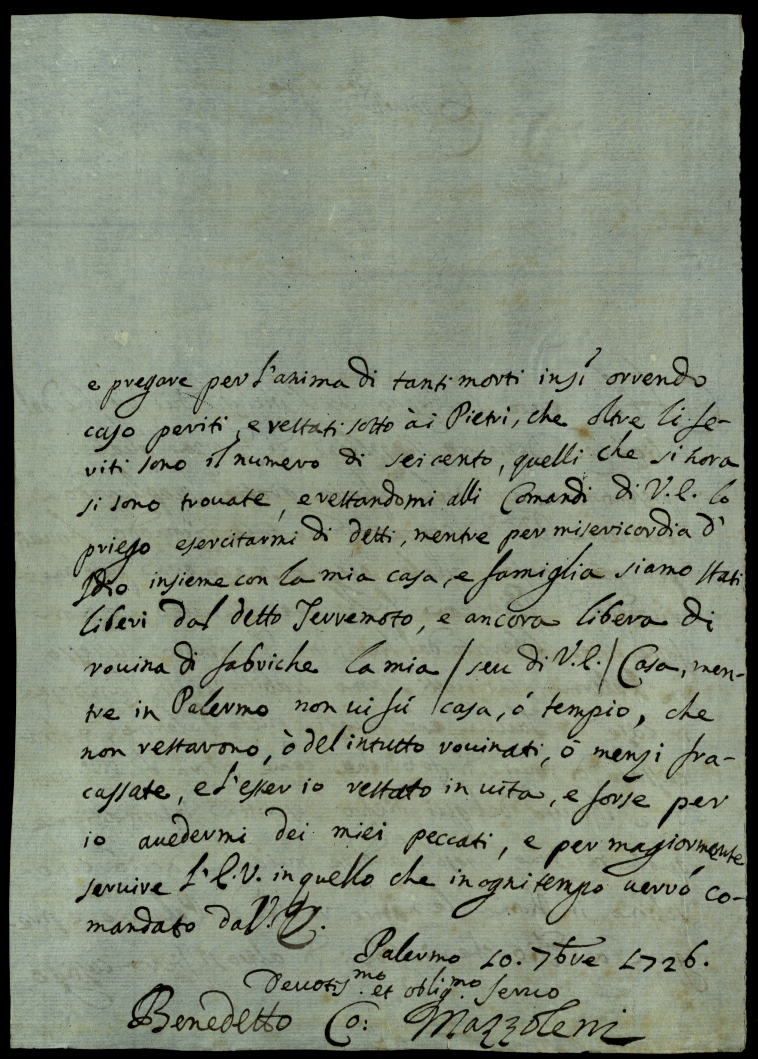 e pregare per l'anima di tanti morti in sì orrendo
caso periti, e restati sotto à i Pietri, che oltre li fe-
riti sono il numero di seicento, quelli che si hora
si sono trovate, e restandomi alli Comandi di V.E. lo
priego esercitarmi di detti, mentre per misericordia d'
Idio insieme con la mia casa, e famiglia siamo stati
liberi dal detto Terremoto, e ancora libera di
rouina di fabriche la mia /seu di V.E./ Casa, men-
tre in Palermo non ui fù casa, ó tempio, che
non restarono, ò del intutto rouinati, ó menzi fra-
cassate, e l'esser io restato in uita, e forse per
io auedermi dei miei peccati, e per magiormente
seruire l'E.V. in quello che in ogni tempo uerró co-
mandato da V.E.
Palermo 10. 7bre 1726.
Deuotis.mo et oblig.mo seruo
Benedetto Co: Mazzoleni